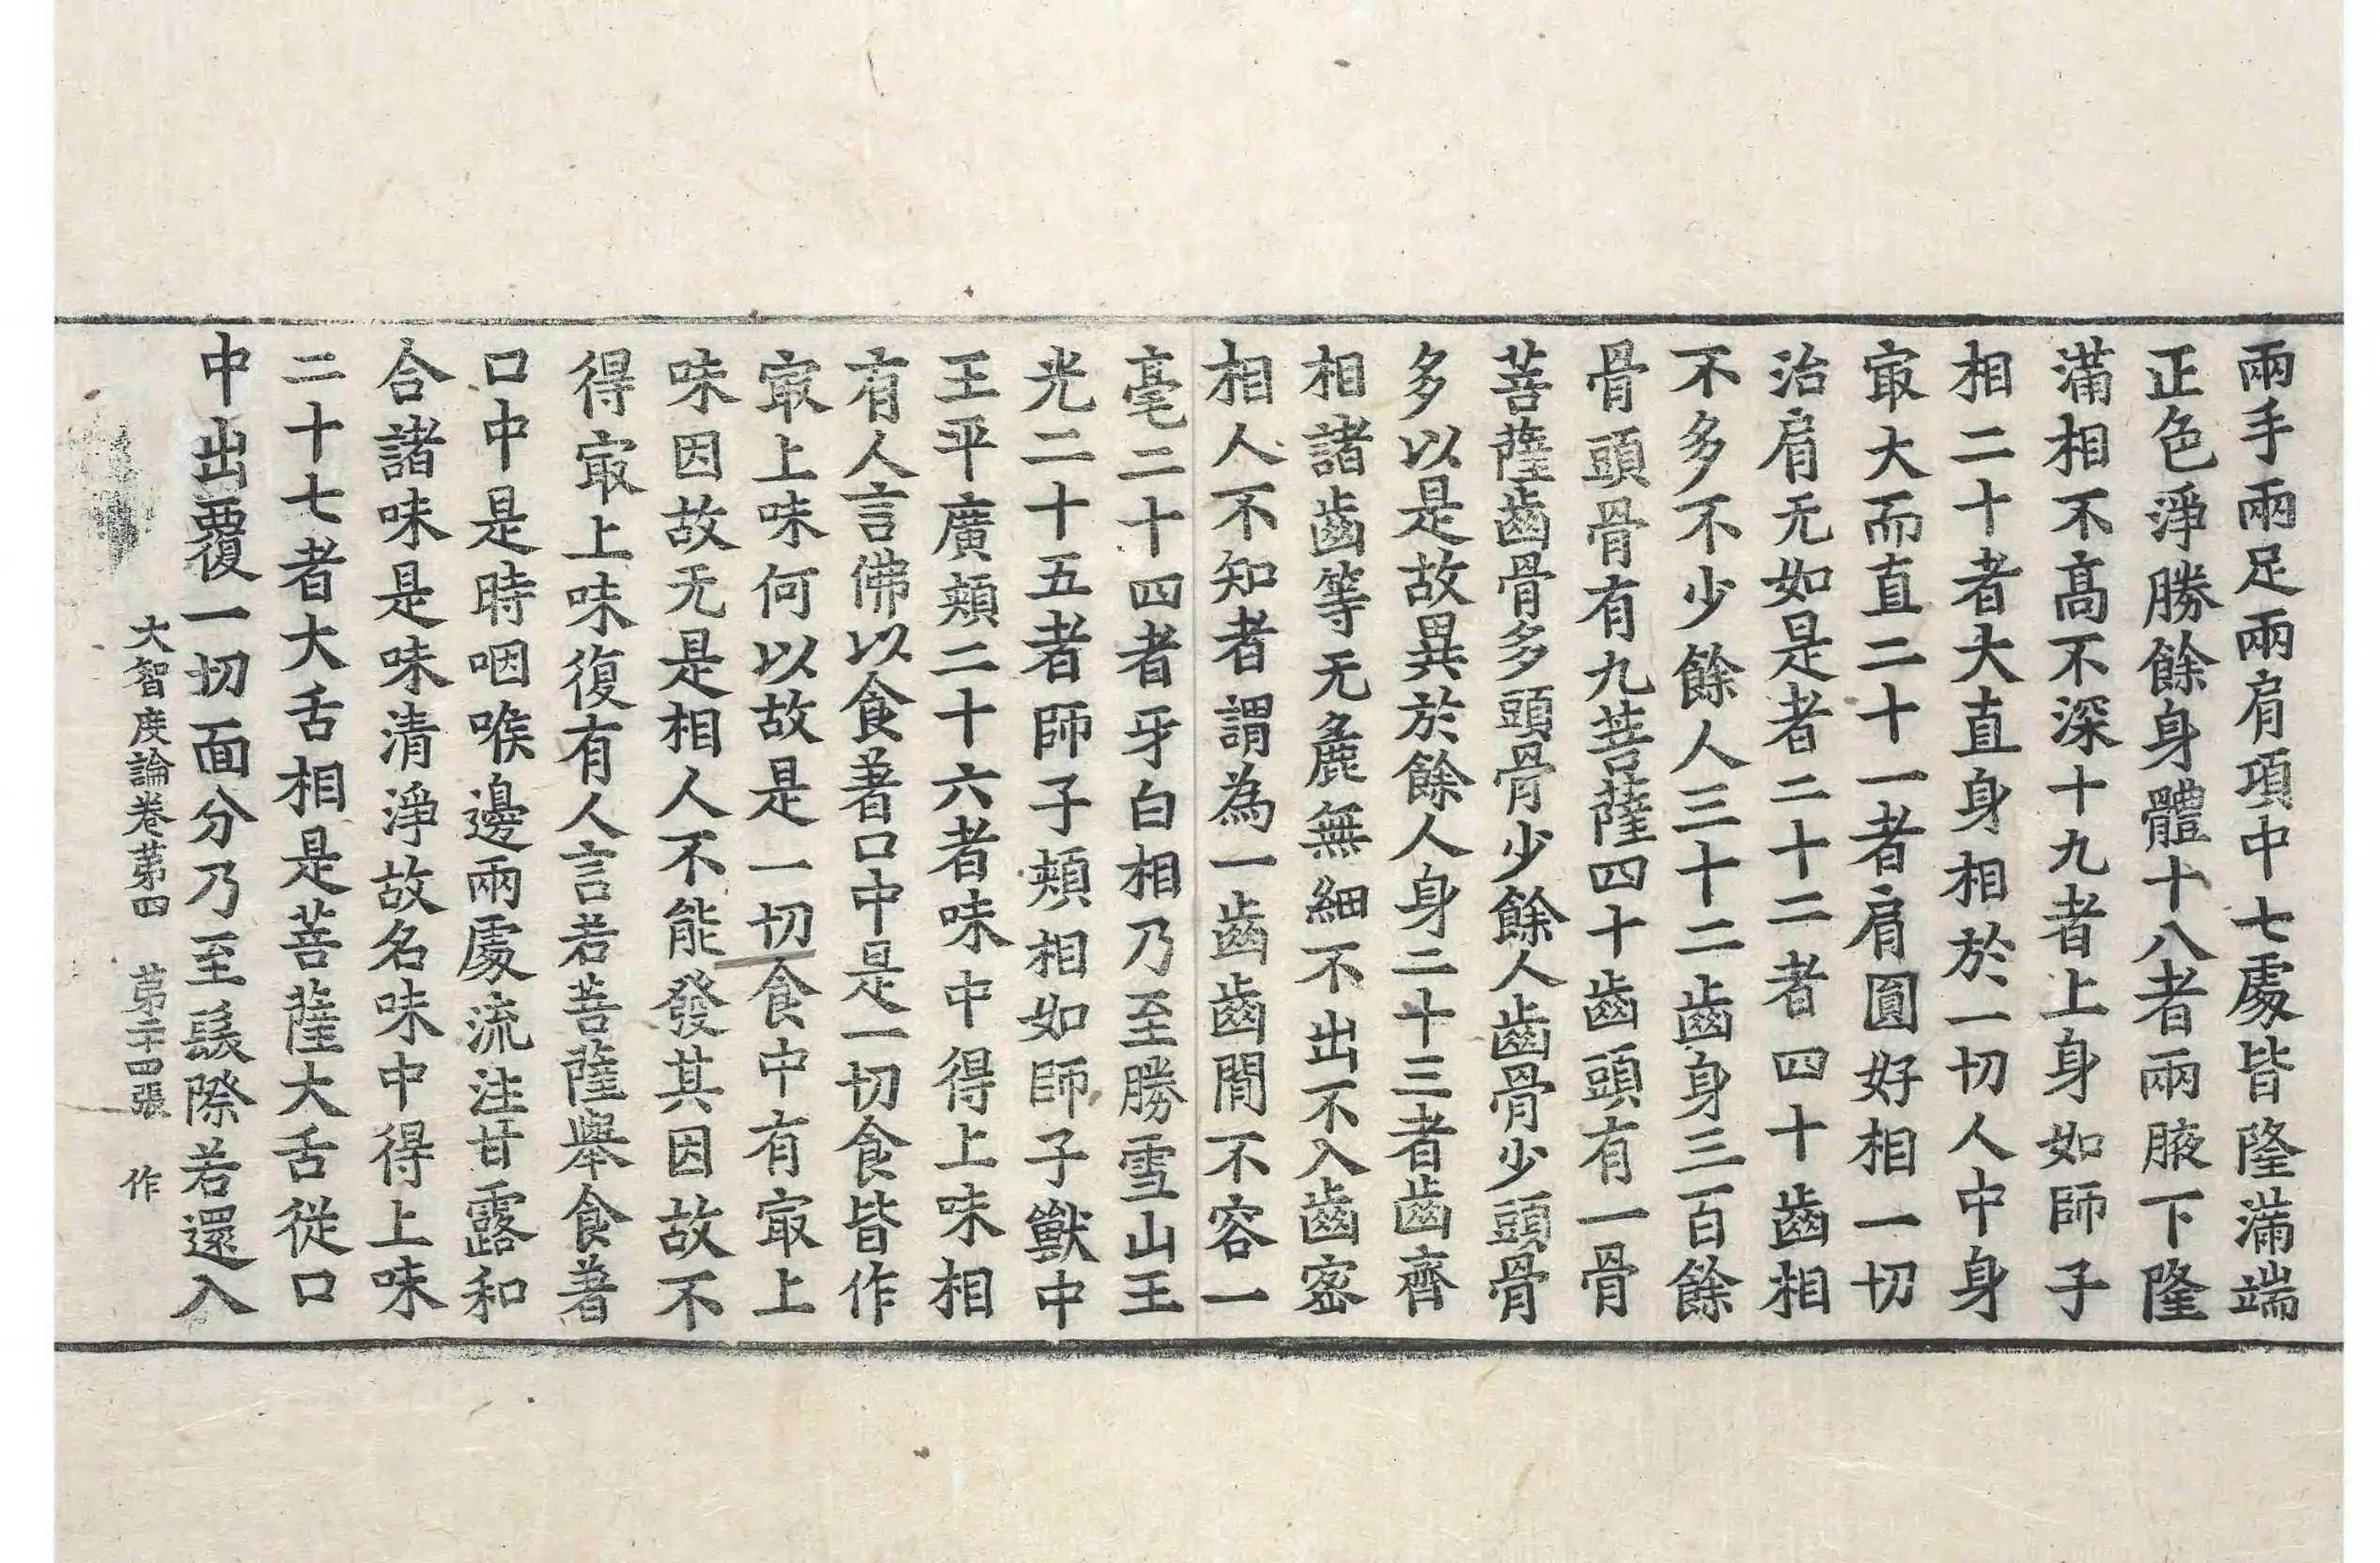 兩手兩足兩肩項中七處皆隆滿端
正色淨勝餘身體十八者兩腋下隆
滿相不高不深十九者上身如師子
相二十者大直身相於一切人中身
冣大而直二十一者肩圓好相一切
治肩无如是者二十二者四十齒相
不多不少餘人三十二齒身三百餘
骨頭骨有九菩薩四十齒頭有一骨
菩薩齒骨多頭骨少餘人齒骨少頭骨
多以是故異於餘人身二十三者齒齊
相諸齒等无麁無細不出不入齒密
相人不知者謂為一齒齒間不容一
毫二十四者牙白相乃至勝雪山王
光二十五者師子頰相如師子獸中
王平廣頰二十六者味中得上味相
有人言佛以食著口中是一切食皆作
冣上味何以故是一切食中有冣上
味因故无是相人不能發其因故不
得冣上味復有人言若菩薩舉食著
口中是時咽喉邊兩處流注甘露和
合諸味是味清淨故名味中得上味
二十七者大舌相是菩薩大舌從口
中出覆一切面分乃至髮際若還入
大智度論卷苐四　苐二十四張　作